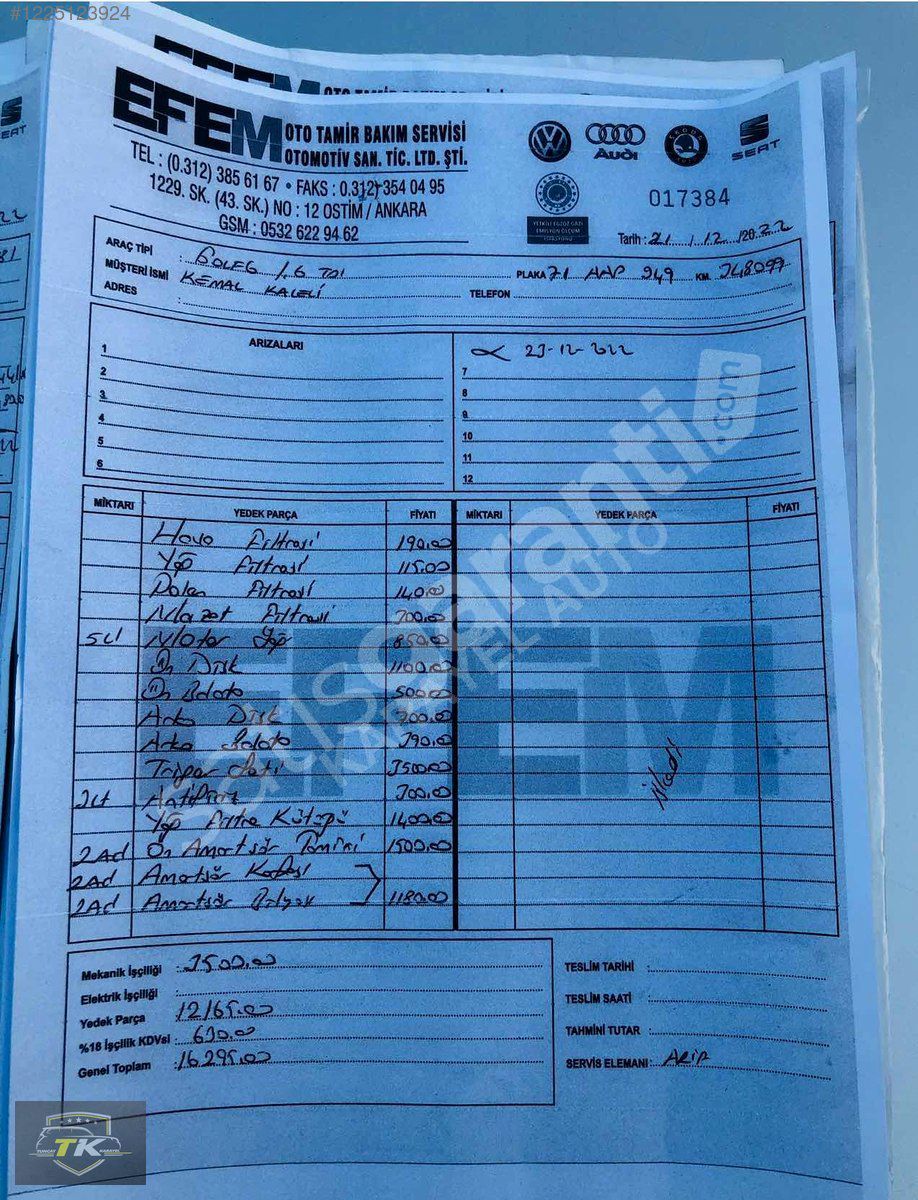 #1225123924
EFEM OTO TAMİR BAKIM SERVİSİ
OTOMOTİV SAN. TİC. LTD. ŞTİ.
TEL : (0.312) 385 61 67 • FAKS : 0.312) 354 04 95
1229. SK. (43. SK.) NO : 12 OSTİM / ANKARA
GSM : 0532 622 94 62
Audi
SKODA
SEAT
YETKİLİ EGZOZ GAZI
EMİSYON ÖLÇÜM
İSTASYONU
017384
Tarih : 21 / 12 / 2022
ARAÇ TİPİ : 1.6 TDI
PLAKA 71 AAP 949 KM. 348099
MÜŞTERİ İSMİ : KEMAL KALELİ
ADRES :
TELEFON
ARIZALARI
23-12-2022
1
2
3
4
5
6
7
8
9
10
11
12
MİKTARI YEDEK PARÇA FİYATI MİKTARI YEDEK PARÇA FİYATI
Hava Filtresi 190.00
Yağ Filtresi 115.00
Polen Filtresi 140.00
Mazot Filtresi 300.00
5Lt Motor Yağ 850.00
Ön Disk 1100.00
Ön Balata 500.00
Arka Disk 900.00
Arka Balata 390.00
Triger Seti 3500.00
Antifriz
Yağ Filtre Kütüğü 1400.00
2Ad Ön Amortisör Tamiri 1500.00
2Ad Amortisör Kafası
2Ad Amortisör 1180.00
Mekanik İşçiliği : 3500.00
Elektrik İşçiliği :
Yedek Parça 12165.00
%18 İşçilik KDVsi : 630.00
Genel Toplam : 16295.00
TESLİM TARİHİ :
TESLİM SAATİ :
TAHMİNİ TUTAR :
SERVİS ELEMANI : ARİF
garanti.com
KARAYEL AUTO
TUNCAY TK KARAYEL